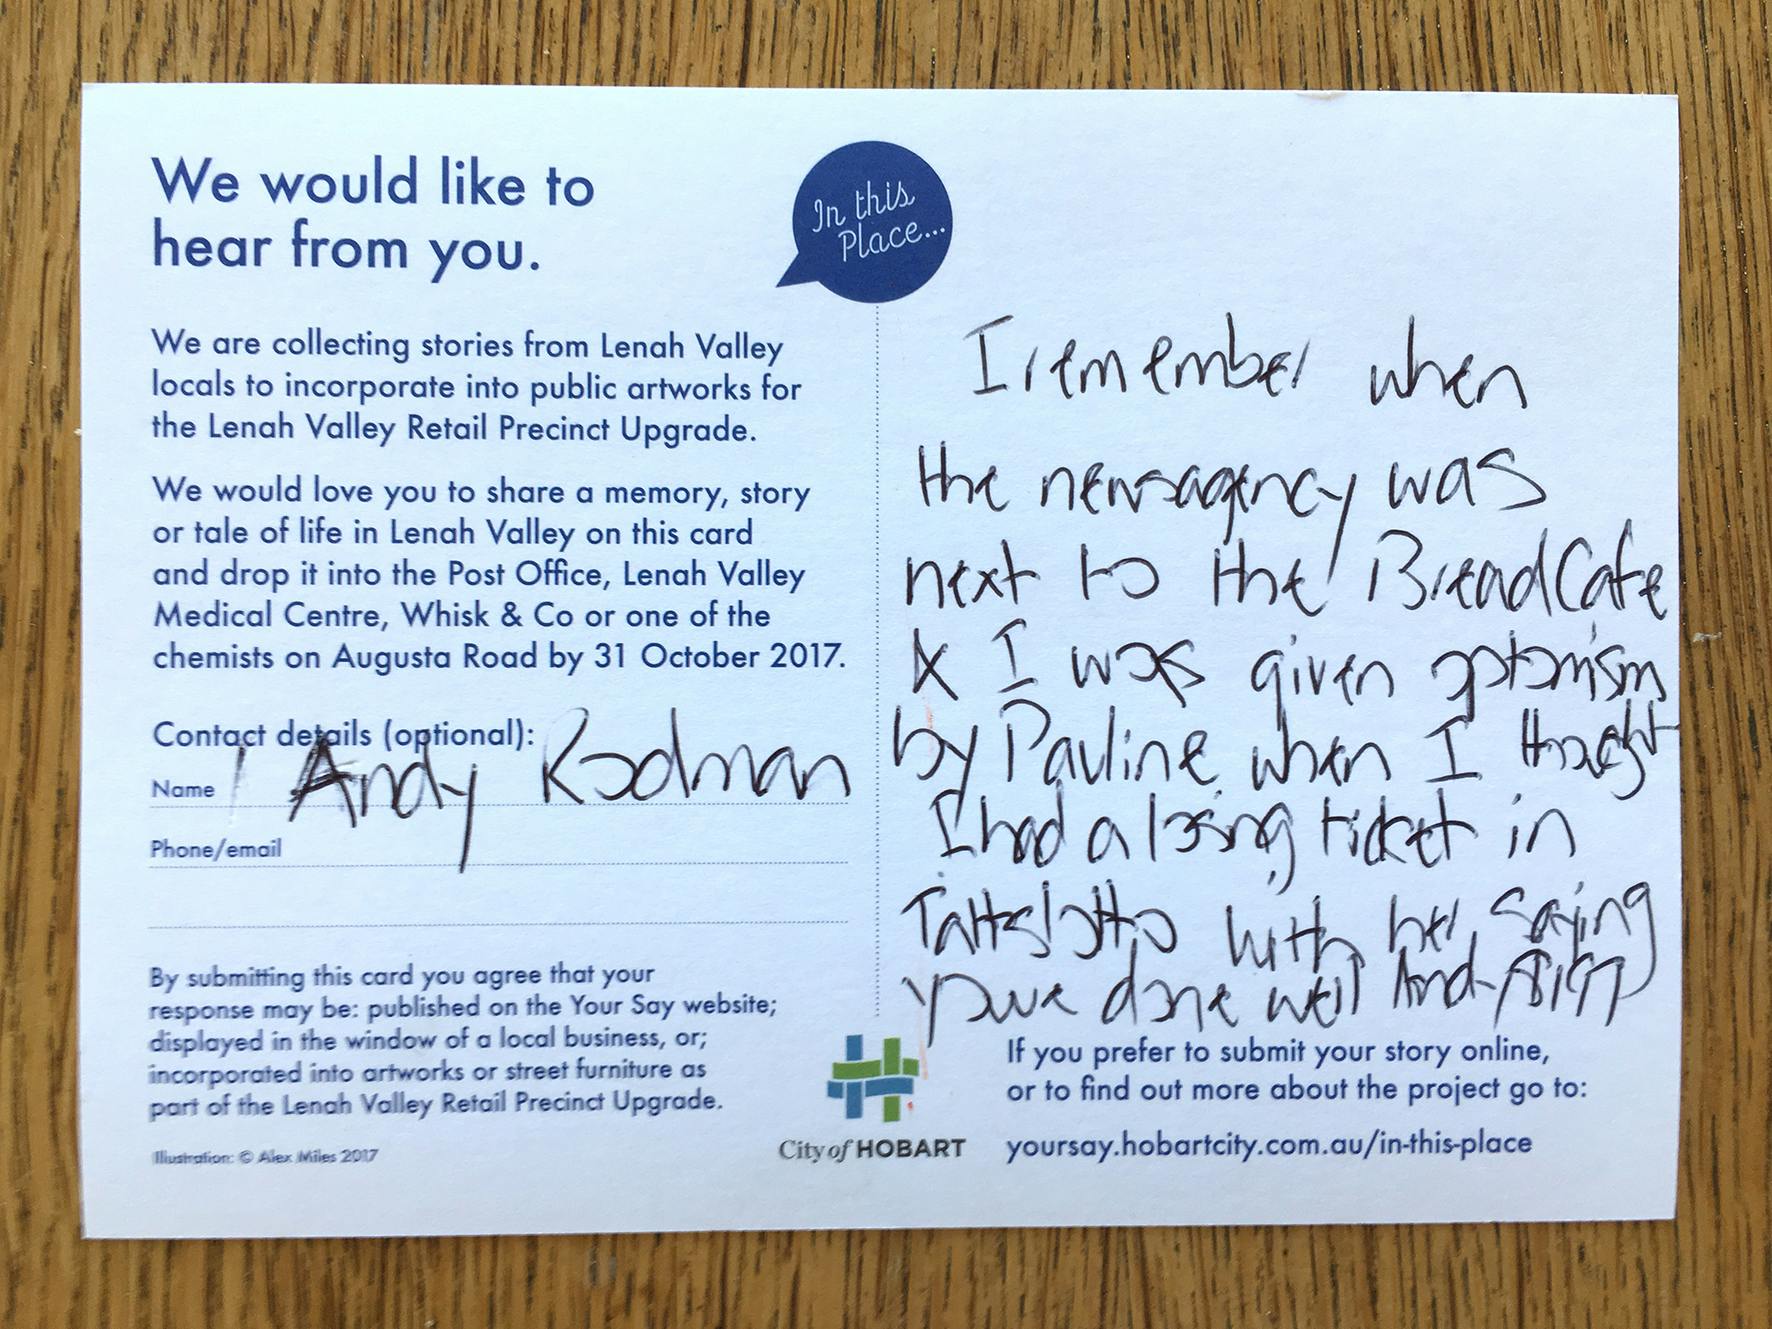 We would like to
hear from you.
In this
Place...
We are collecting stories from Lenah Valley
locals to incorporate into public artworks for
the Lenah Valley Retail Precinct Upgrade.
We would love you to share a memory, story
or tale of life in Lenah Valley on this card
and drop it into the Post Office, Lenah Valley
Medical Centre, Whisk & Co or one of the
chemists on Augusta Road by 31 October 2017.
Contact details (optional):
Name Andy Rodman
Phone/email
By submitting this card you agree that your
response may be: published on the Your Say website;
displayed in the window of a local business, or;
incorporated into artworks or street furniture as
part of the Lenah Valley Retail Precinct Upgrade.
Illustration: © Alex Miles 2017
I remember when
the newsagency was
next to the Bread Cafe
& I was given optomism
by Pauline when I thought
I had a losing ticket in
Tattslotto with her saying
youve done well
City of HOBART
If you prefer to submit your story online,
or to find out more about the project go to:
yoursay.hobartcity.com.au/in-this-place